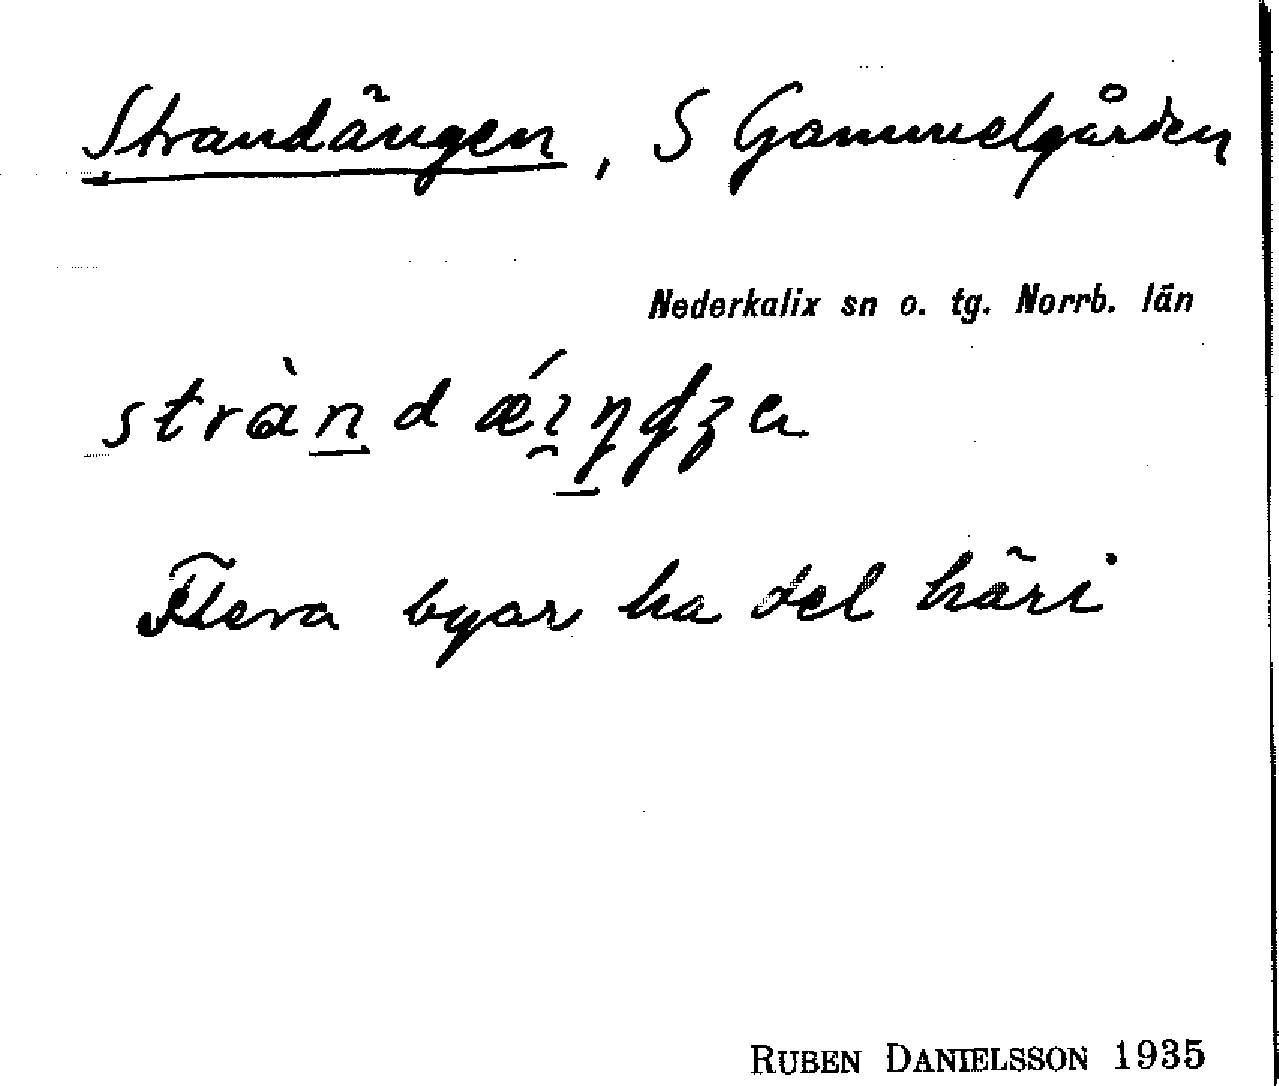 Strandängen, S Gammelgården
Nederkalix sn o. tg. Norrb. län
stràn̲d ǽı̯ŋ̲dʒa
Flera byar ha del häri
RUBEN DANIELSSON 1935